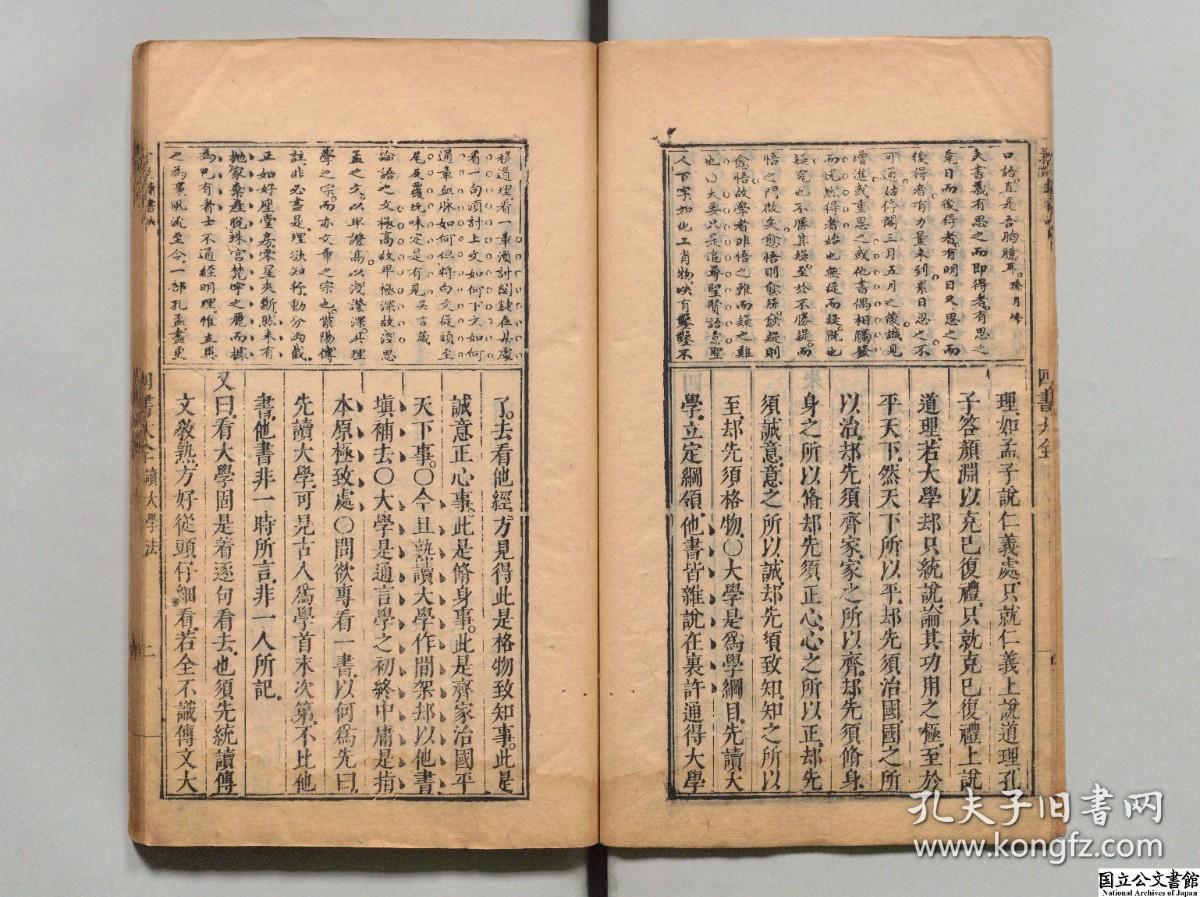 口語直是吾胸臆耳
夫書義有思之而即得者有思之
竟日而後得者有明日又思之而
後得者有力量未到累日思之不
可通姑停閣三月五月之後識見
增進或重思之或他書偶相觸發
而恍然得者始也無從而疑既也
疑窮也不勝其疑至於不勝疑而
悟之門啟矣愈悟則愈疑愈疑則
愈悟故學者非悟之難而疑之難
也大要只是追尋聖賢語意聖
人下字如化工肖物妙有鑿鑿不
理如孟子說仁義處只就仁義上說道理孔
子答顏淵以克己復禮只就克己復禮上說
道理若大學却只統說論其功用之極至於
平天下然天下所以平却先須治國國之所
以治却先須齊家家之所以齊却先須脩身
身之所以脩却先須正心心之所以正却先
須誠意意之所以誠却先須致知知之所以
至却先須格物○大學是爲學綱目先讀大
學立定綱領他書皆雜說在裏許通得大學
四書大全
移道理看一章須討關鍵在某處
看一句須討上文如何下文如何
通章血脉如何但將白文從頭至
尾反覆玩味定是有見吳言箴
論語之文極高故卑極深故淺思
孟之文以卑證高以淺證深此理
學之宗而亦文章之宗也紫陽傳
註非必盡是理欲知行動分兩截
正如好座堂房零星夾斷然未有
拋家棄産
爲己有者士不通經明理惟
之爲事風流至今一部孔孟盡更
了去看他經方見得此是格物致知事此是
誠意正心事此是脩身事此是齊家治國平
天下事○今且熟讀大學作間架却以他書
填補去○大學是通言學之初終中庸是指
本原極致處○問欲專看一書以何爲先曰
先讀大學可見古人爲學首末次第不比他
書他書非一時所言非一人所記
又曰看大學固是着逐句看去也須先統讀傳
文教熟方好從頭仔細看若全不識傳文大
四書大全
讀大學法
二
孔夫子旧书网
www.kongfz.com
国立公文書館
National Archives of Japan